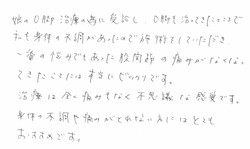 娘のO脚治療の為に受診し、O脚も治ってきたことで
私も身体の不調があったので施術をしていただき
一番の悩みでもあった股関節の痛みがなくなっ
てきたことには本当にビックリです。
治療は全く痛みもなく不思議な感覚です。
身体の不調や痛みがとれない方にはとても
おすすめです。